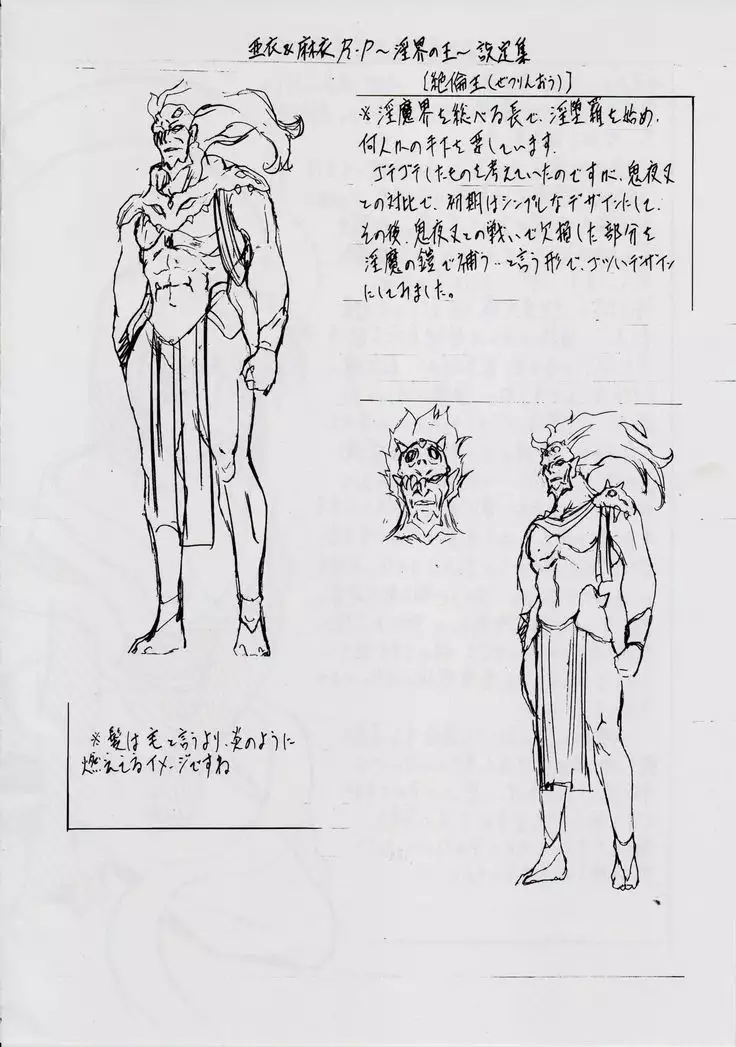 亜衣&麻衣 R・P～淫界の王～ 設定集
[絶倫王(ぜつりんおう)]
※淫魔界を統べる長で、淫堕羅を始め、
何人かの手下を要しています。
ゴテゴテしたものを考えていたのですが、鬼夜叉
との対比で、初期はシンプルなデザインにして、
その後、鬼夜叉との戦いで欠損した部分を
淫魔の鎧で補う…と言う形で、ゴツいデザイン
にしてみました。
※髪は毛と言うより、炎のように
燃えてるイメージですね